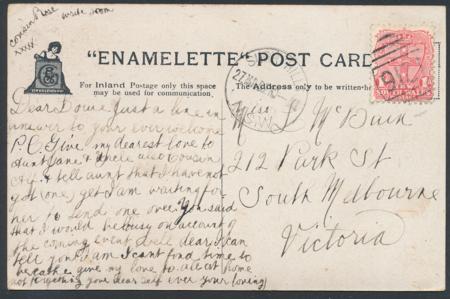 write soon
cousin Rose
xxxx
"ENAMELETTE" POST CARD
For Inland Postage only this space
may be used for communication.
The Address only to be written
27
N.S.W.
NEW
SOUTH WALES
Dear Dowie Just a line in
answer to your ever welcome
P.C. Give my dearest love to
Aunt Jane & Uncle also Cousin
Alf & tell aunt that I have not
got one yet I am waiting for
her to send one over. You said
that I would be busy on account of
the coming event well dear I can
tell you I am I cant find time to
breathe give my love to all at home
not forgetting your dear self ever your loving
Miss L McPuin
212 Park St
South Melbourne
Victoria